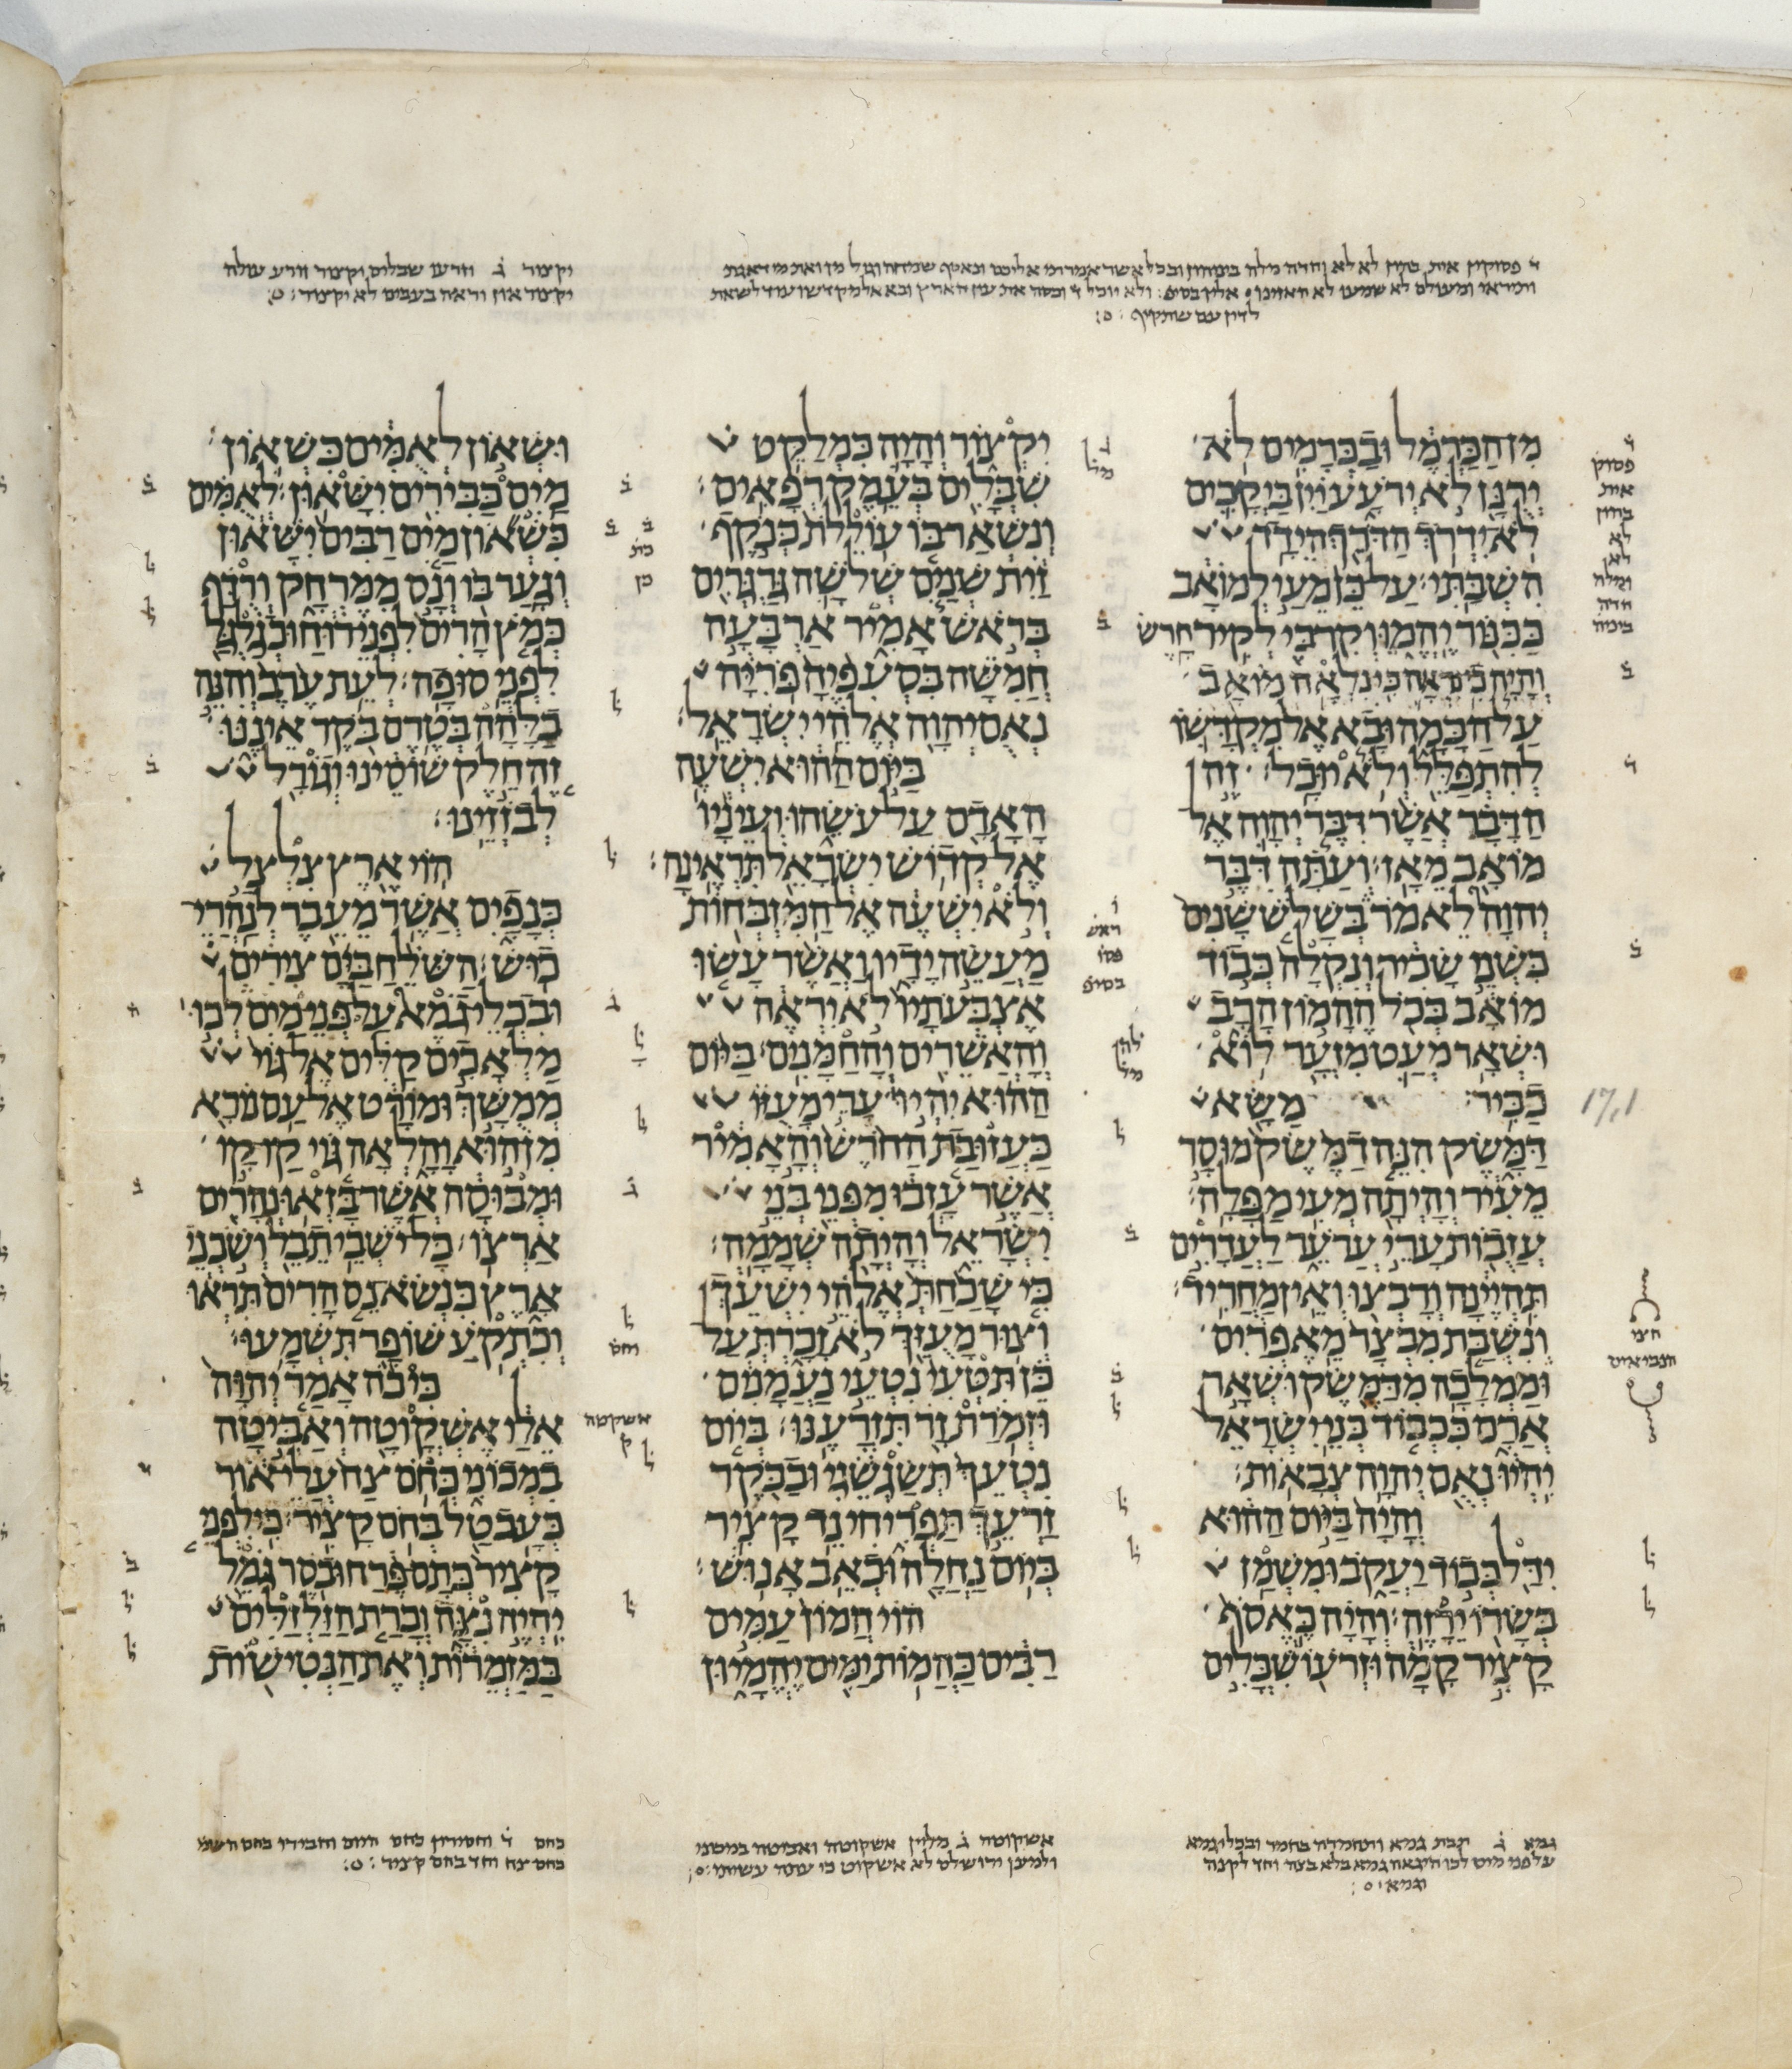 ד פסוקין אית בהון לא לא וחדה מלה ביניהון ובכל אשר אמרתי אליכם ונאסף שמחה וגיל מן
ומעולם לא שמעו לא האזינו
יקצור ג וזרעו שבלים יקצור זורע עולה
יקצור און וראה בעבים לא יקצור
מן הכרמל ובכרמים לא
ירנן לא ירעע יין ביקבים
לא ידרך הדרך הידד
השבתי׃ על כן מעי למואב
ככנור יהמו וקרבי לקיר חרש׃
והיה כי נראה כי נלאה מואב
על הבמה ובא אל מקדשו
להתפלל ולא יוכל׃ זה
הדבר אשר דבר יהוה אל
מואב מאז׃ ועתה דבר
יהוה לאמר בשלש שנים
כשני שכיר ונקלה כבוד
מואב בכל ההמון הרב
ושאר מעט מזער לוא
כביר׃ משא
דמשק הנה דמשק מוסר
מעיר והיתה מעי מפלה׃
עזבות ערי ערער לעדרים
תהיינה ורבצו ואין מחריד׃
ונשבת מבצר מאפרים
וממלכה מדמשק ושאר
ארם ככבוד בני ישראל
יהיו נאם יהוה צבאות׃
והיה ביום ההוא
ידל כבוד יעקב ומשמן
בשרו ירזה׃ והיה כאסף
קציר קמה וזרעו שבלים
יקצור והיה כמלקט
שבלים בעמק רפאים׃
ונשאר בו עוללת כנקף
זית שנים שלשה גרגרים
בראש אמיר ארבעה
חמשה בסעפיה פריה
נאם יהוה אלהי ישראל׃
ביום ההוא ישעה
האדם על עשהו ועיניו
אל קדוש ישראל תראינה׃
ולא ישעה אל המזבחות
מעשה ידיו ואשר עשו
אצבעתיו לא יראה
והאשרים והחמנים׃ ביום
ההוא יהיו ערי מעזו
כעזובת החרש והאמיר
אשר עזבו מפני בני
ישראל והיתה שממה׃
כי שכחת אלהי ישעך
וצור מעזך לא זכרת על
כן תטעי נטעי נעמנים
וזמרת זר תזרענו׃ ביום
נטעך תשגשגי ובבקר
זרעך תפריחי נד קציר
ביום נחלה וכאב אנוש׃
הוי המון עמים
רבים כהמות ימים יהמיון
ושאון לאמים כשאון
מים כבירים ישאון׃ לאמים
כשאון מים רבים ישאון
וגער בו ונס ממרחק ורדף
כמץ הרים לפני רוח וכגלגל
לפני סופה׃ לעת ערב והנה
בלהה בטרם בקר איננו
זה חלק שוסינו וגורל
לבזזינו׃
הוי ארץ צלצל
כנפים אשר מעבר לנהרי
כוש׃ השלח בים צירים
ובכלי גמא על פני מים לכו
מלאכים קלים אל גוי
ממשך ומורט אל עם נורא
מן הוא והלאה גוי קו קו
ומבוסה אשר בזאו נהרים
ארצו׃ כל ישבי תבל ושכני
ארץ כנשא נס הרים תראו
וכתקע שופר תשמעו׃
כי כה אמר יהוה
אלי אשקוטה ואביטה
במכוני כחם צח עלי אור
כעב טל בחם קציר׃ כי לפני
קציר כתם פרח ובסר גמל
יהיה נצה וכרת הזלזלים
במזמרות ואת הנטישות
17,1
חצי
הנביאים
אשקטה
ק
גמא ג תבת גמא ותחמרה בחמר ובכלי גמא
על פני מים לכו היגאה גמא בלא בצה וחד לקנה
וגמא
אשקוטה ג מלין אשקוטה ואביטה במכוני
ולמען ירושלם לא אשקוט
כחם ד כחם היום
כחם צח וחד בחם קציר